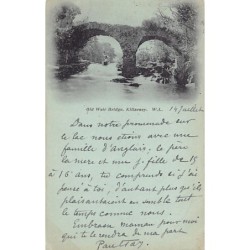 Old Weir Bridge, Killarney. W.L. 14 juillet
Dans notre promenade sur
le lac nous étions avec une
famille d'Anglais, le père
la mère et une j. fille de 15
à 16 ans, tu comprends si j'ai
pensé à toi, d'autant plus qu'ils
plaisantaient en semble tout
le temps comme nous.
Embrasse maman pour moi
qui te le rendra de ma part